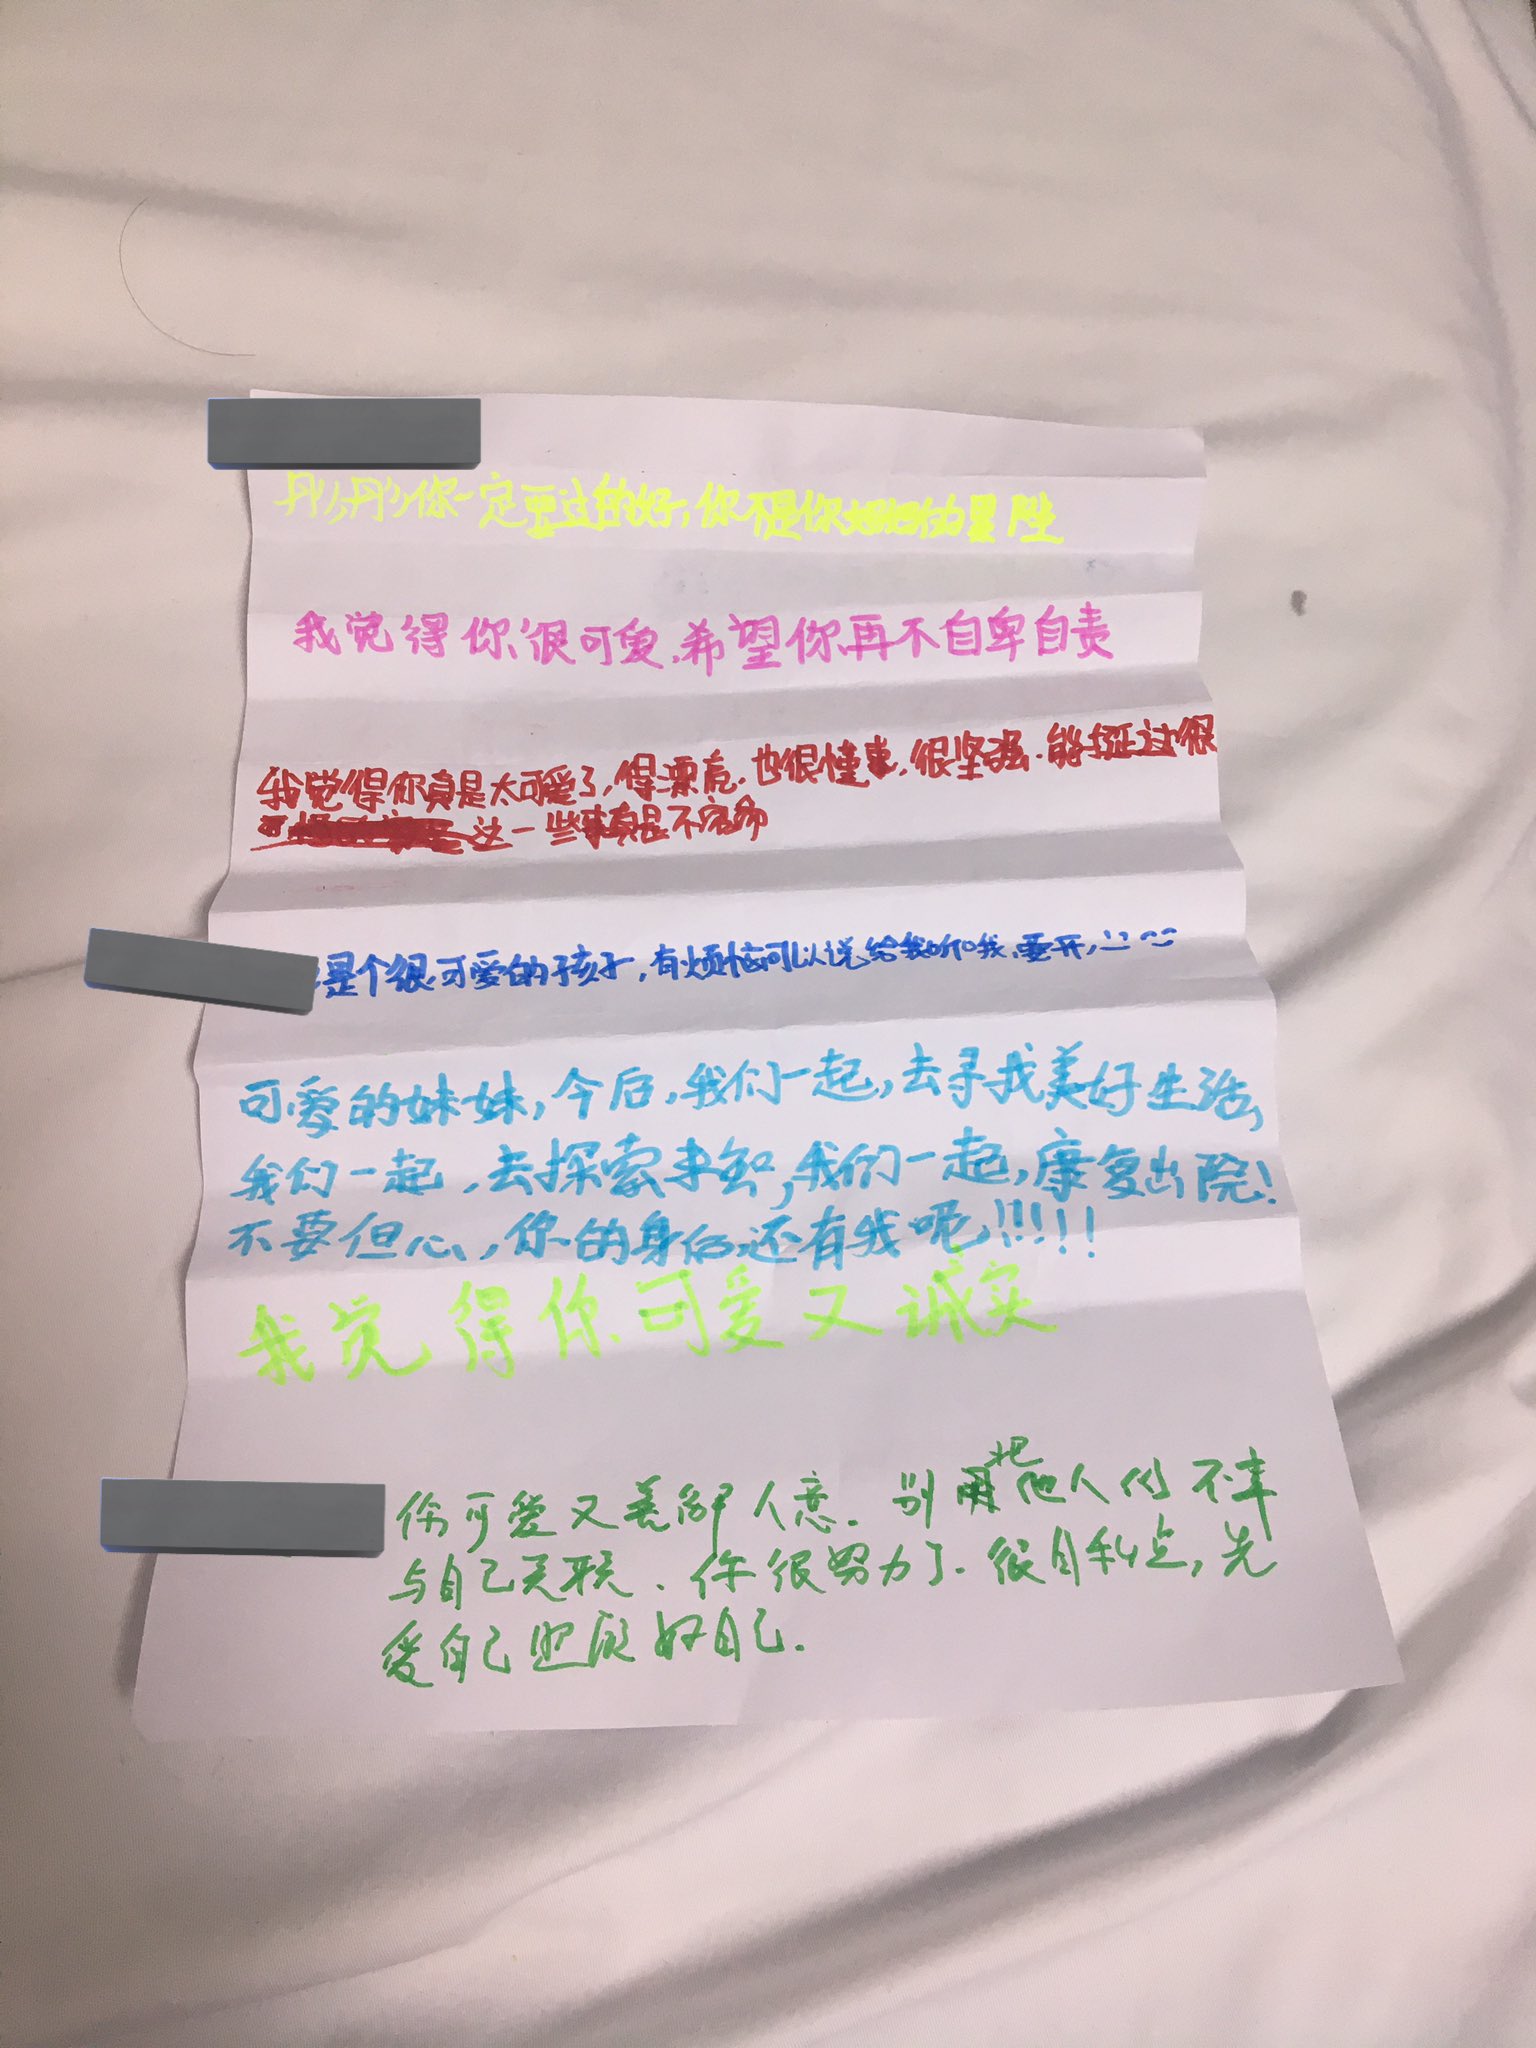 彤彤你一定要过的好,你不是你妈妈的
我觉得你很可爱.希望你再不自卑自责
我觉得你真是太可爱了,得漂亮.也很懂事.很坚强.能挺过很
这一些事真是不容易
是个很可爱的孩子,有烦恼可以说给我听哦.
可爱的妹妹,今后,我们一起,去寻找美好生活,
我们一起,去探索未知,我们一起,康复出院!
不要但心,你的身后还有我呢!!!!!
我觉得你可爱又诚实
你可爱又善解人意.别把他人的不幸
与自己关联.你很努力了.很自私点,先
爱自己照顾好自己.